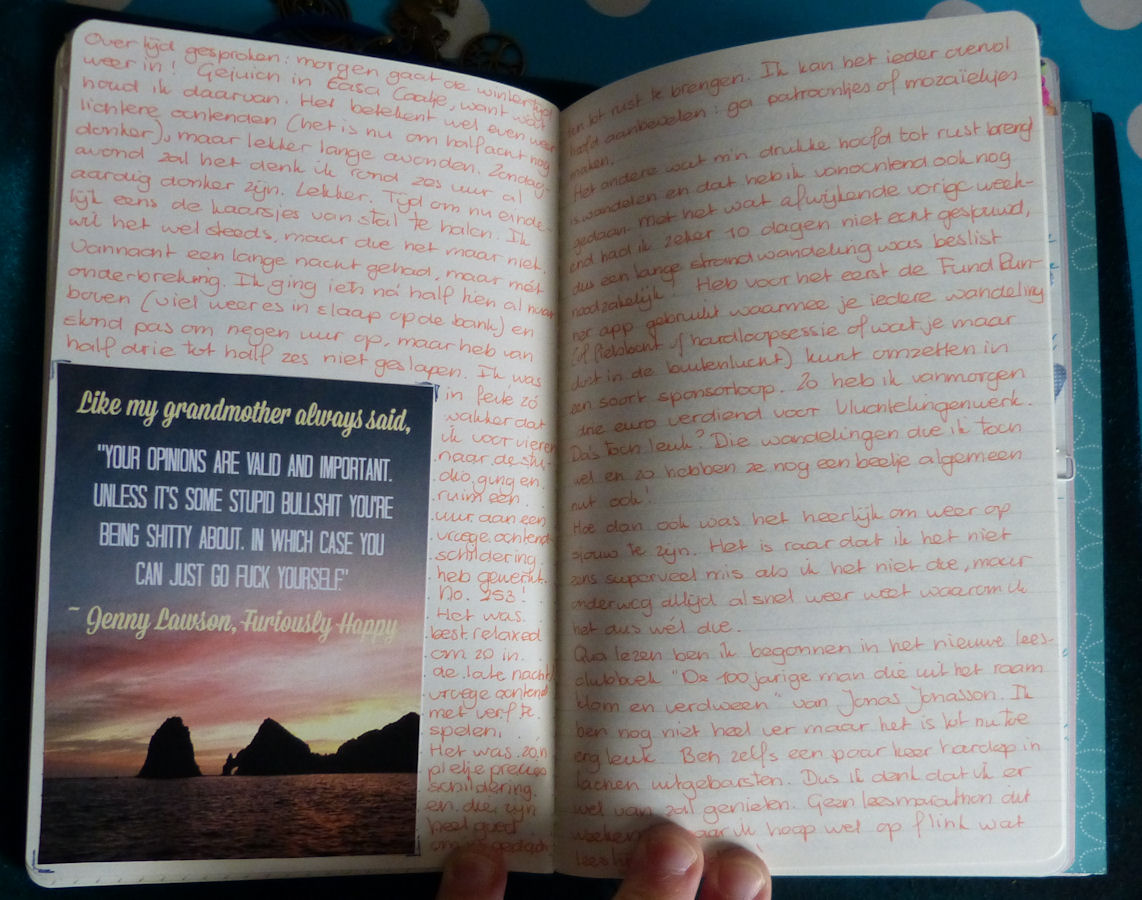 Over tijd gesproken: morgen gaat de wintertijd
weer in! Gejuich in Casa Caatje, want wat
houd ik daarvan. Het betekent wel even weer
lichtere ochtenden (het is nu om half acht nog
donker), maar lekker lange avonden. Zondag-
avond zal het denk ik rond zes uur al
aardig donker zijn. Lekker. Tijd om nu einde-
lijk eens de kaarsjes van stal te halen. Ik
wil het wel steeds, maar doe het maar niet.
Vannacht een lange nacht gehad, maar mét
onderbreking. Ik ging iets ná half tien al naar
boven (viel weer es in slaap op de bank) en
stond pas om negen uur op, maar heb van
half drie tot half zes niet geslapen. Ik was
in feite zó
wakker dat
ik voor vieren
naar de stu-
dio ging en
ruim een
uur aan een
vroege ochtend-
schildering
heb gewerkt.
No. 253!
Het was
best relaxed
om zo in
de late nacht/
vroege ochtend
met verf te
spelen.
Het was zo'n
pietje precies
schildering
en die zijn
heel goed
om je gedach-
Like my grandmother always said,
"YOUR OPINIONS ARE VALID AND IMPORTANT.
UNLESS IT'S SOME STUPID BULLSHIT YOU'RE
BEING SHITTY ABOUT. IN WHICH CASE YOU
CAN JUST GO FUCK YOURSELF."
~ Jenny Lawson, Furiously Happy
ten tot rust te brengen. Ik kan het ieder overvol
hoofd aanbevelen: ga patroontjes of mozaïekjes
maken.
Het andere wat m'n drukke hoofd tot rust brengt
is wandelen en dat heb ik vanochtend ook nog
gedaan. Met het wat afwijkende vorige week-
end had ik zeker 10 dagen niet echt gesjouwd,
dus een lange strandwandeling was beslist
noodzakelijk! Heb voor het eerst de Fund Run-
ner app gebruikt waarmee je iedere wandeling
(of fietstocht of hardloopsessie of wat je maar
doet in de buitenlucht) kunt omzetten in
een soort sponsorloop. Zo heb ik vanmorgen
drie euro verdiend voor Vluchtelingenwerk.
Da's toch leuk? Die wandelingen doe ik toch
wel en zo hebben ze nog een beetje algemeen
nut ook!
Hoe dan ook was het heerlijk om weer op
sjouw te zijn. Het is raar dat ik het niet
eens superveel mis als ik het niet doe, maar
onderweg altijd al snel weer weet waarom ik
het dus wél doe.
Qua lezen ben ik begonnen in het nieuwe lees-
clubboek "De 100 jarige man die uit het raam
klom en verdween" van Jonas Jonasson. Ik
ben nog niet heel ver maar het is tot nu toe
erg leuk. Ben zelfs een paar keer hardop in
lachen uitgebarsten. Dus ik denk dat ik er
wel van zal genieten. Geen leesmarathon dit
weeken maar ik hoop wel op flink wat